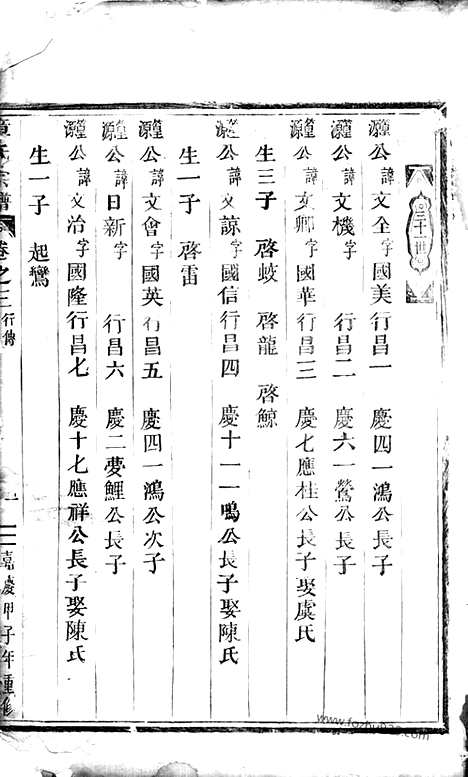 三十一世
公諱文全字國美行昌一 慶四一鴻公長子
公諱文機字 行昌二 慶六一鶯公長子
公諱文卿字國華行昌三 慶七應桂公長子娶虞氏
生三子 啓蛟 啓龍 啓鯨
公諱文諒字國信行昌四 慶十一一鳴公長子娶陳氏
生一子 啓雷
公諱文會字國英行昌五 慶四一鴻公次子
公諱日新字 行昌六 慶二夢鯉公長子
公諱文治字國隆行昌七 慶十七應祥公長子娶陳氏
生一子 起鸞
氏宗譜 卷之三 行傳 一 嘉慶甲子年重修